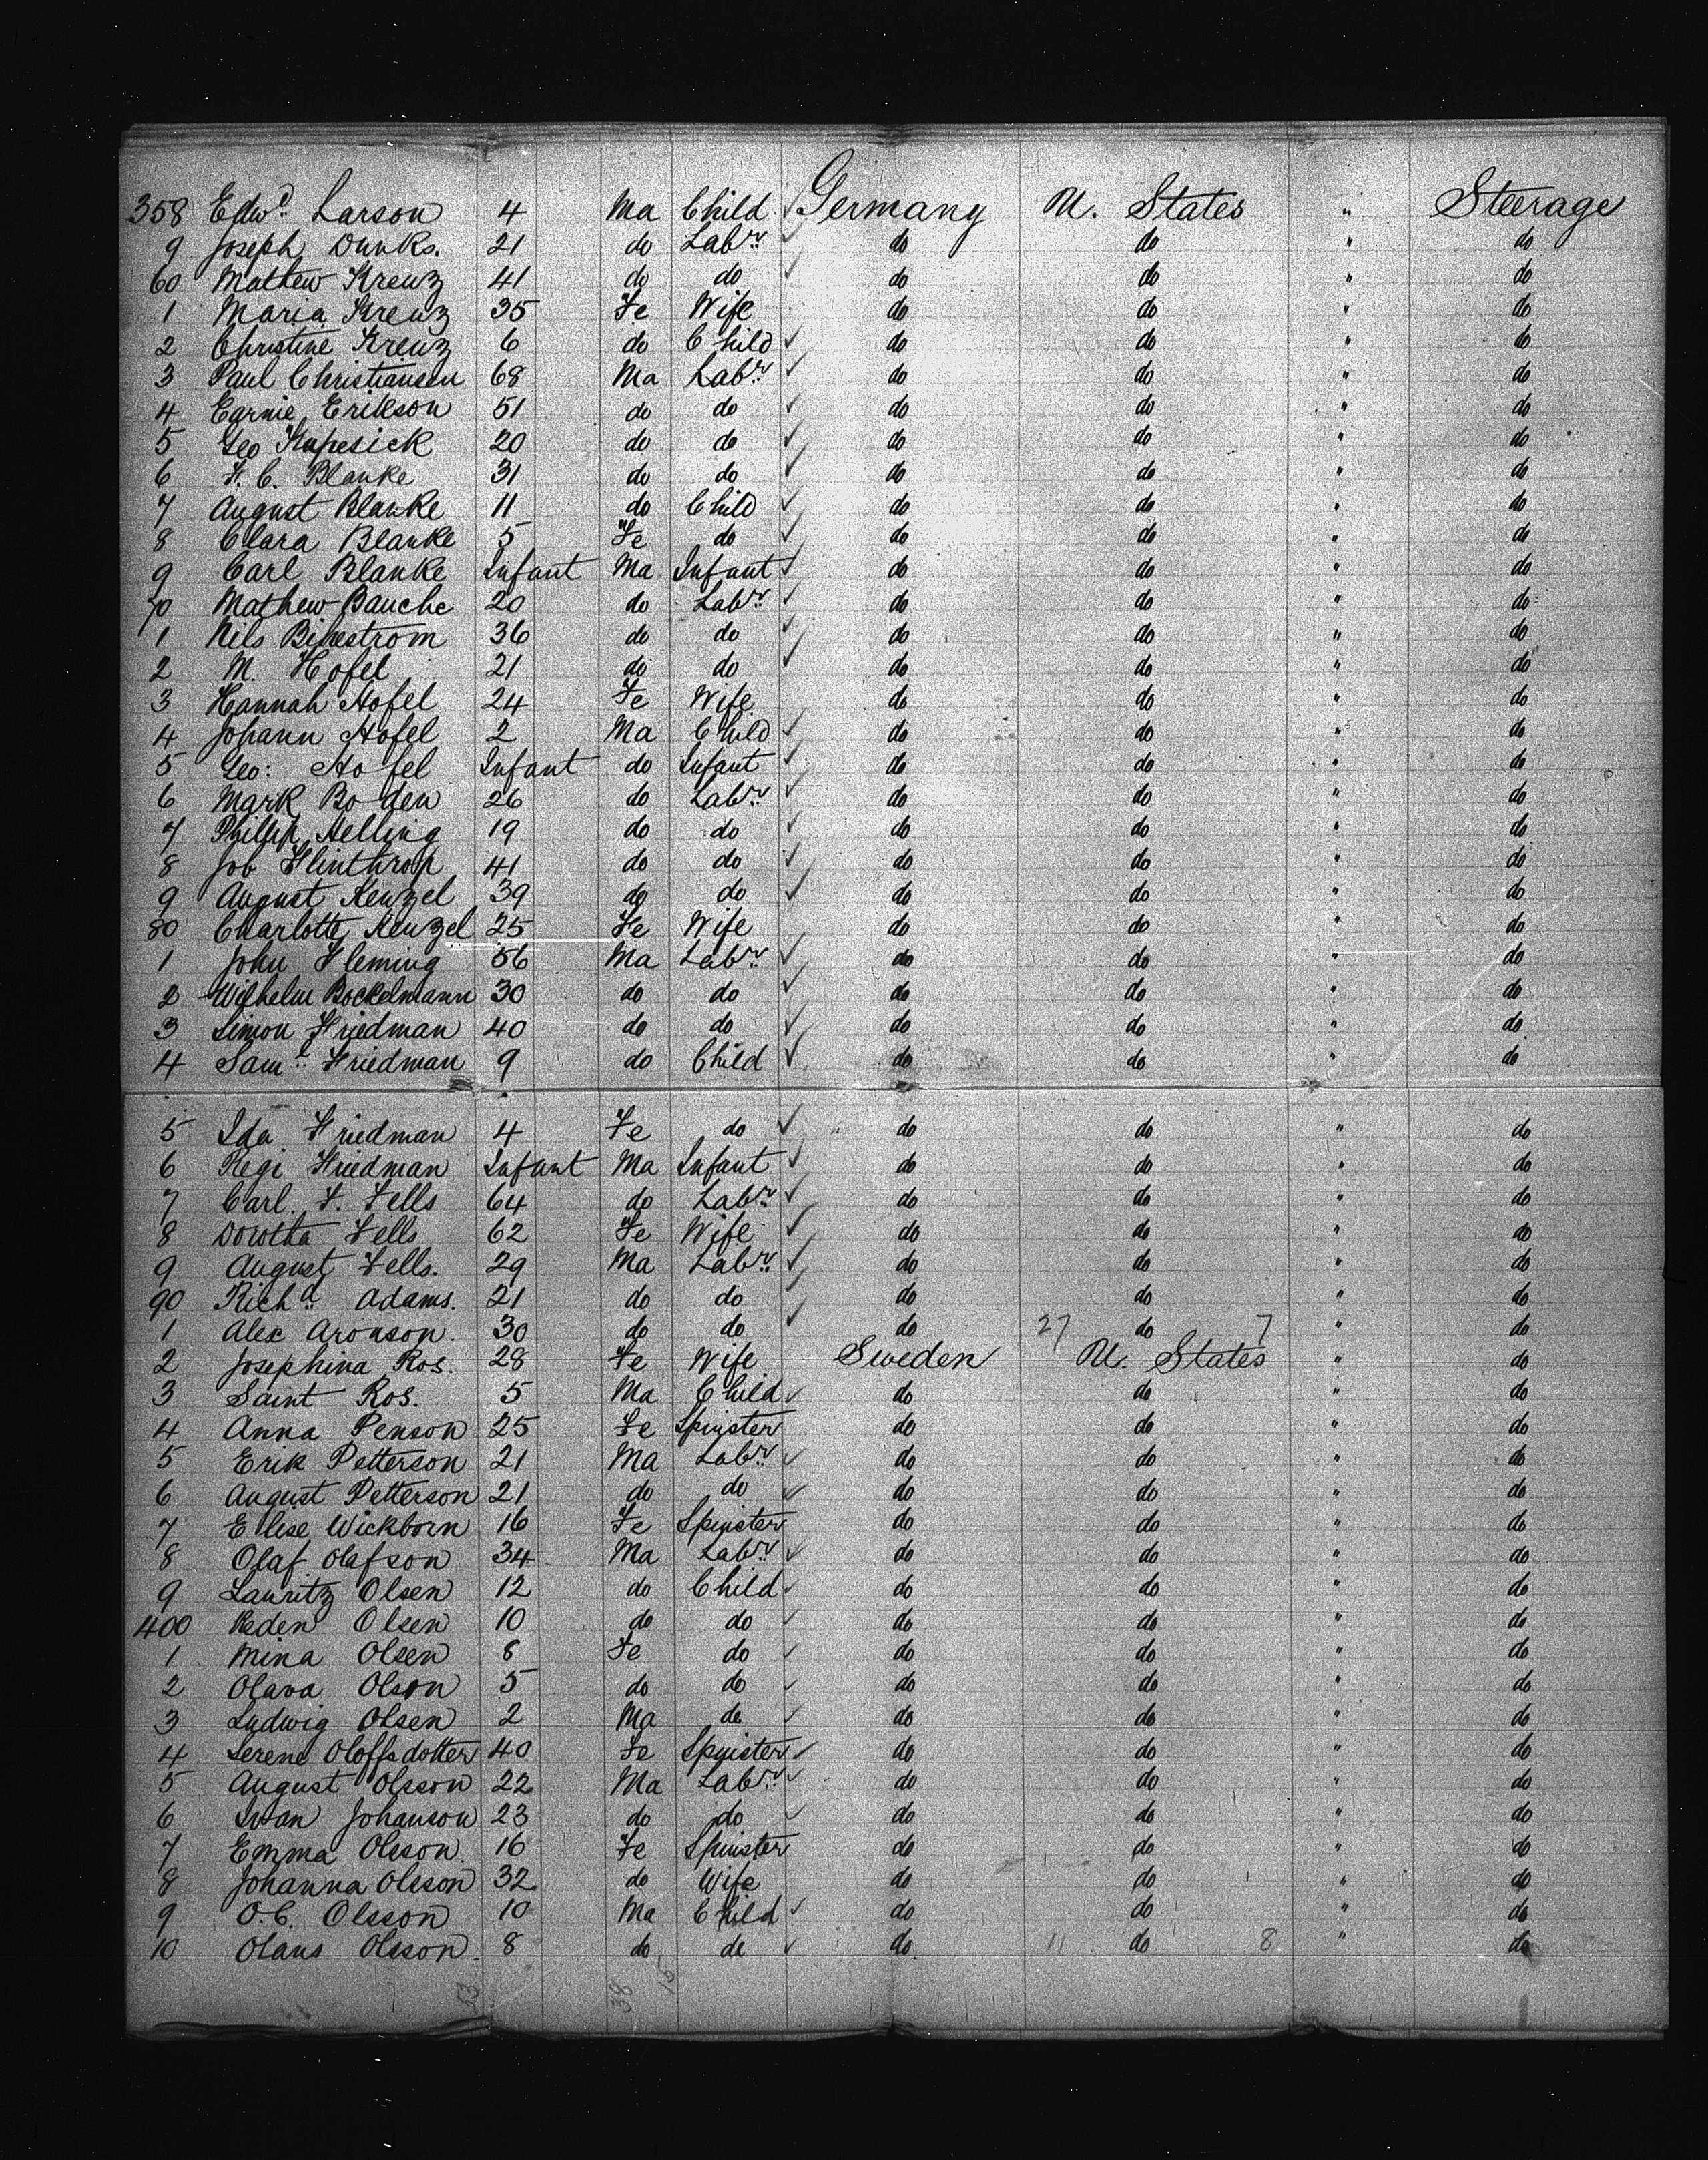 358 Edwd Larson 4 Ma Child ✓ Germany U. States " Steerage
9 Joseph Dunks. 21 do Labr ✓ do do " do
60 Mathew Kreuz 41 do do ✓ do do " do
1 Maria Kreuz 35 Fe Wife do do " do
2 Christine Kreuz 6 do Child ✓ do do " do
3 Paul Christiansen 68 Ma Labr ✓ do do " do
4 Earnie Erikson 51 do do ✓ do do " do
5 Geo Kapesick 20 do do ✓ do do " do
6 F. C. Blanke 31 do do ✓ do do " do
7 August Blanke 11 do Child ✓ do do " do
8 Clara Blanke 5 Fe do ✓ do do " do
9 Carl Blanke Infant Ma Infant ✓ do do " do
70 Mathew Bauche 20 do Labr ✓ do do " do
1 Nels 36 do do ✓ do do " do
2 M. Hofel 21 do do ✓ do do " do
3 Hannah Hofel 24 Fe Wife do do " do
4 Johann Hofel 2 Ma Child ✓ do do " do
5 Geo: Hofel Infant do Infant ✓ do do " do
6 Mark Boden 26 do Labr ✓ do do " do
7 Philip Helling 19 do do ✓ do do " do
8 Job Flinthrop 41 do do ✓ do do " do
9 August Kenzel 39 do do ✓ do do " do
80 Charlotte Kenzel 25 Fe Wife do do " do
1 John Fleming 56 Ma Labr ✓ do do " do
2 Wilhelm Bockelmann 30 do do ✓ do do " do
3 Simon Friedman 40 do do ✓ do do " do
4 Saml Friedman 9 do Child ✓ do do " do
5 Ida Friedman 4 Fe do ✓ do do " do
6 Regi Friedman Infant Ma Infant ✓ do do " do
7 Carl. F. Fells 64 do Labr ✓ do do " do
8 Dorotha Fells 62 Fe Wife ✓ do do " do
9 August Fells. 29 Ma Labr ✓ do do " do
90 Richd Adams. 21 do do ✓ do do " do
1 Alex Aronson. 30 do do ✓ do 27 do 7 " do
2 Josephina Ros. 28 Fe Wife Sweden U. States " do
3 Saint Ros. 5 Ma Child ✓ do do " do
4 Anna Penson 25 Fe Spinster do do " do
5 Erik Petterson 21 Ma Labr ✓ do do " do
6 August Petterson 21 do do ✓ do do " do
7 Elise Wickborn 16 Fe Spinster do do " do
8 Olaf Olafson 34 Ma Labr ✓ do do " do
9 Lauritz Olsen 12 do Child ✓ do do " do
400 Peden Olsen 10 do do ✓ do do " do
1 Mina Olsen 8 Fe do ✓ do do " do
2 Olava Olson 5 do do ✓ do do " do
3 Ludwig Olsen 2 Ma do ✓ do do " do
4 Serene Oloffsdotter 40 Fe Spinster ✓ do do " do
5 August Olsson 22 Ma Labr ✓ do do " do
6 Swan Johanson 23 do do ✓ do do " do
7 Emma Olsson. 16 Fe Spinster do do " do
8 Johanna Olsson 32 do Wife do do " do
9 O. C. Olsson 10 Ma Child ✓ do do " do
10 Olaus Olsson. 8 do do ✓ do 11 do 8 " do
53 38 15